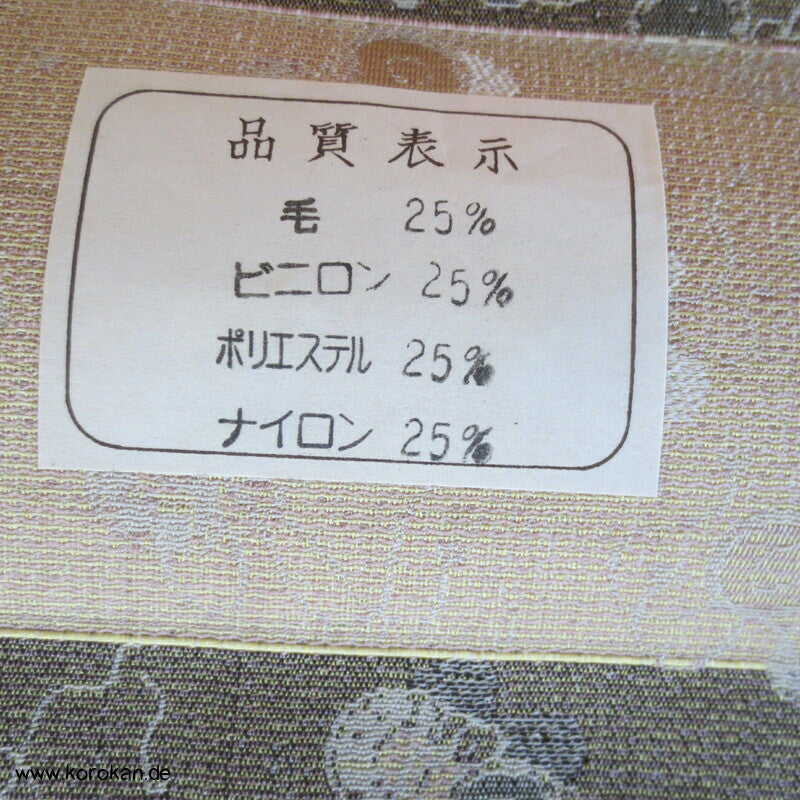 品質表示
毛 25%
ビニロン 25%
ポリエステル 25%
ナイロン 25%
www.korokan.de